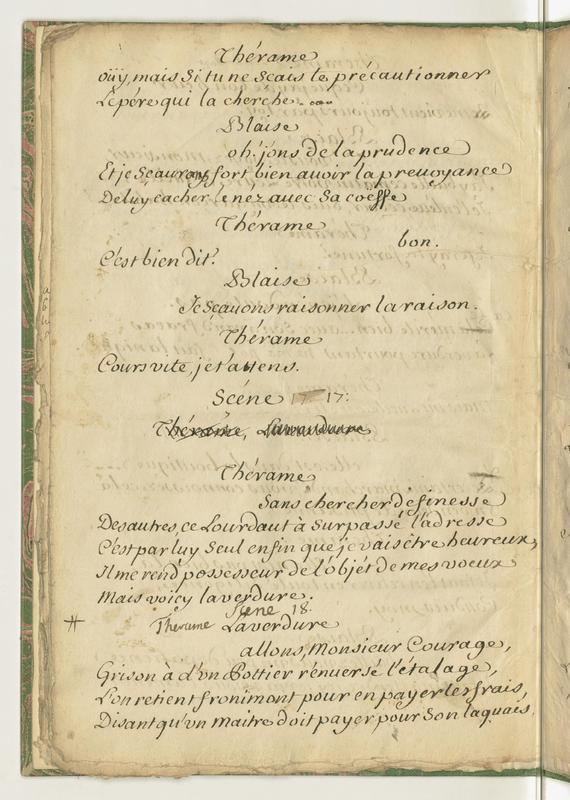 Thérame
oüy, mais si tu ne scais le précautionner
Le pére qui la cherche....
Blaise
oh! jons de la prudence
Et je scauray fort bien auoir la preuoyance
De luy cacher le néz auec sa coeffe
Thérame
bon.
C'est bien dit.
Blaise
Je sçauons raisonner la raison.
Thérame
Cours vite, je t'attens.
Scéne 17:
Thérame, Lauerdure
Thérame
Sans chercher de finesse
Des autres, ce Lourdaut à surpassé l'adresse
C'est par luy seul enfin que je vais être heureux,
Il me rend possesseur de l'objét de mes voeux
Mais voicy laverdure.
Scene 18.
# Therame Laverdure
allons, Monsieur Courage,
Grison à d'vn Pottier rénuersé l'étalage,
L'on retient fronimont pour en payer les frais,
Disant qu'vn maitre doit payer pour son laquais.